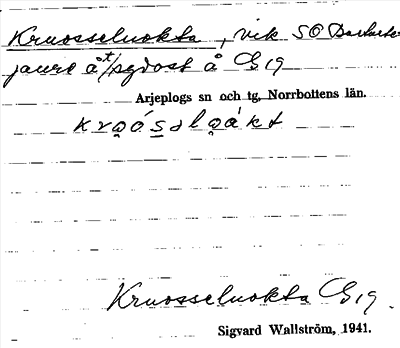 Kruosseluokta, vik SO
jaure åt sydost å G 19
Arjeplogs sn och tg, Norrbottens län.
Kruosseluokta G 19.
Sigvard Wallström, 1941.